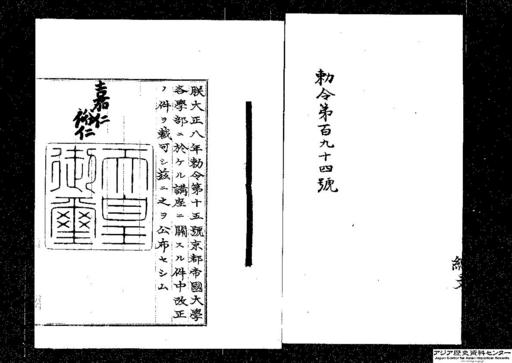 勅令第百九十四號
朕大正八年勅令第十五號京都帝國大學
各學部ニ於ケル講座ニ關スル件中改正
ノ件ヲ裁可シ茲ニ之ヲ公布セシム
嘉仁
裕仁
天皇
御璽
アジア歴史資料センター
Japan Center for Asian Historical Records